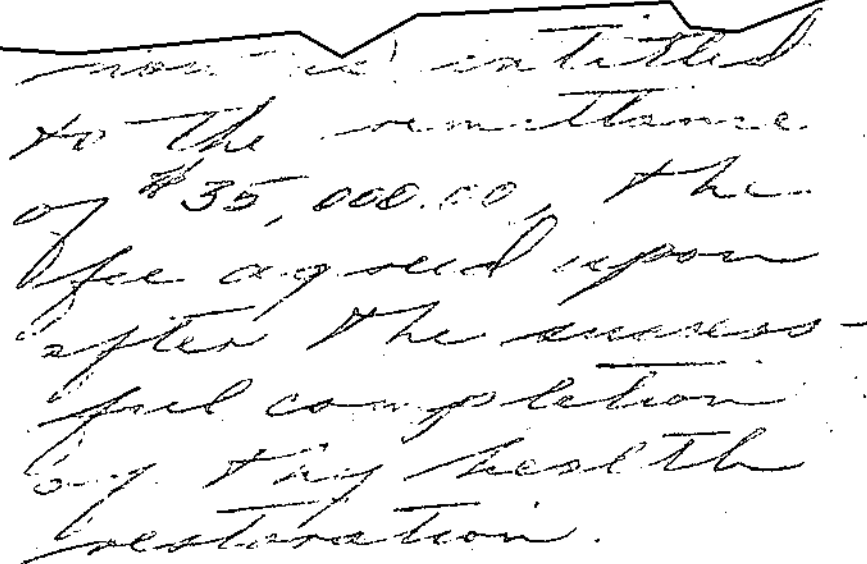 now is entitled
to the remittance
of $35,000.00, the
fee agreed upon
after the success-
ful completion
of thy health
restoration.